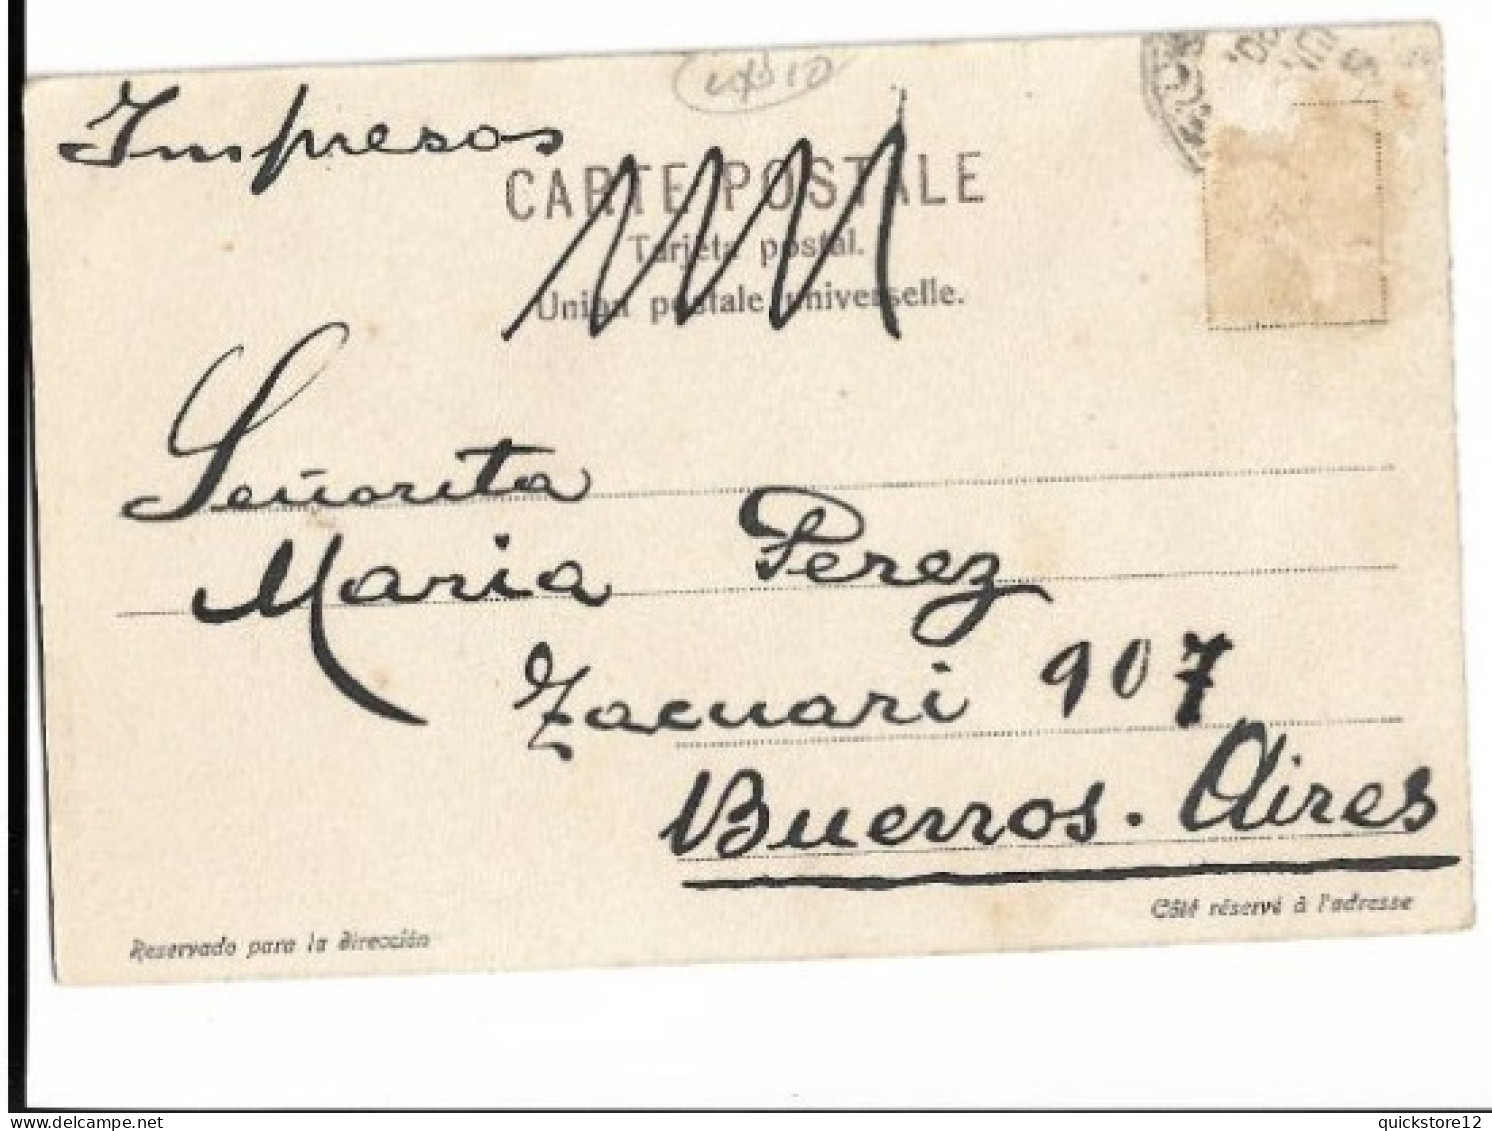 Impresos
CARTE POSTALE
Tarjeta postal.
Union postale universelle.
Señorita
Maria Perez
Zacuari 907
Buenos. Aires
Côté réservé à l'adresse
Reservado para la dirección
quickstore12